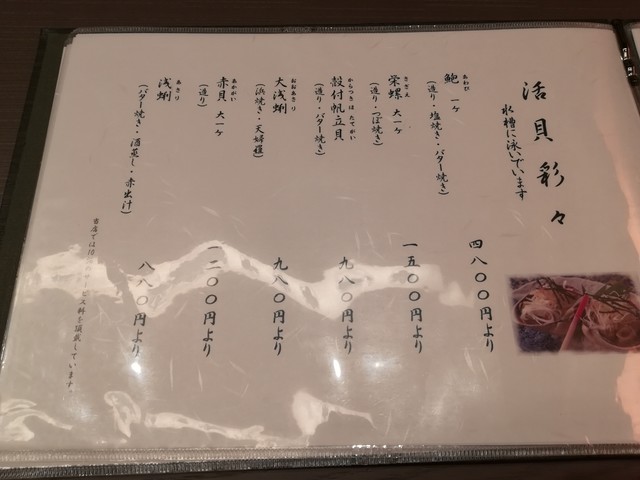 活貝彩々
水槽に泳いでいます
あわび
鮑 一ヶ
(造り・塩焼き・バター焼き)
四八〇〇円より
さざえ
栄螺 大一ヶ
(造り・つぼ焼き)
一五〇〇円より
からつきほたてがい
殻付帆立貝
(造り・バター焼き)
九八〇円より
おおあさり
大浅蜊
(浜焼き・天婦羅)
九八〇円より
あかがい
赤貝 大一ヶ
(造り)
一二〇〇円より
あさり
浅蜊
(バター焼き・酒蒸し・赤出汁)
八八〇円より
当店では10%のサービス料を頂戴しています。